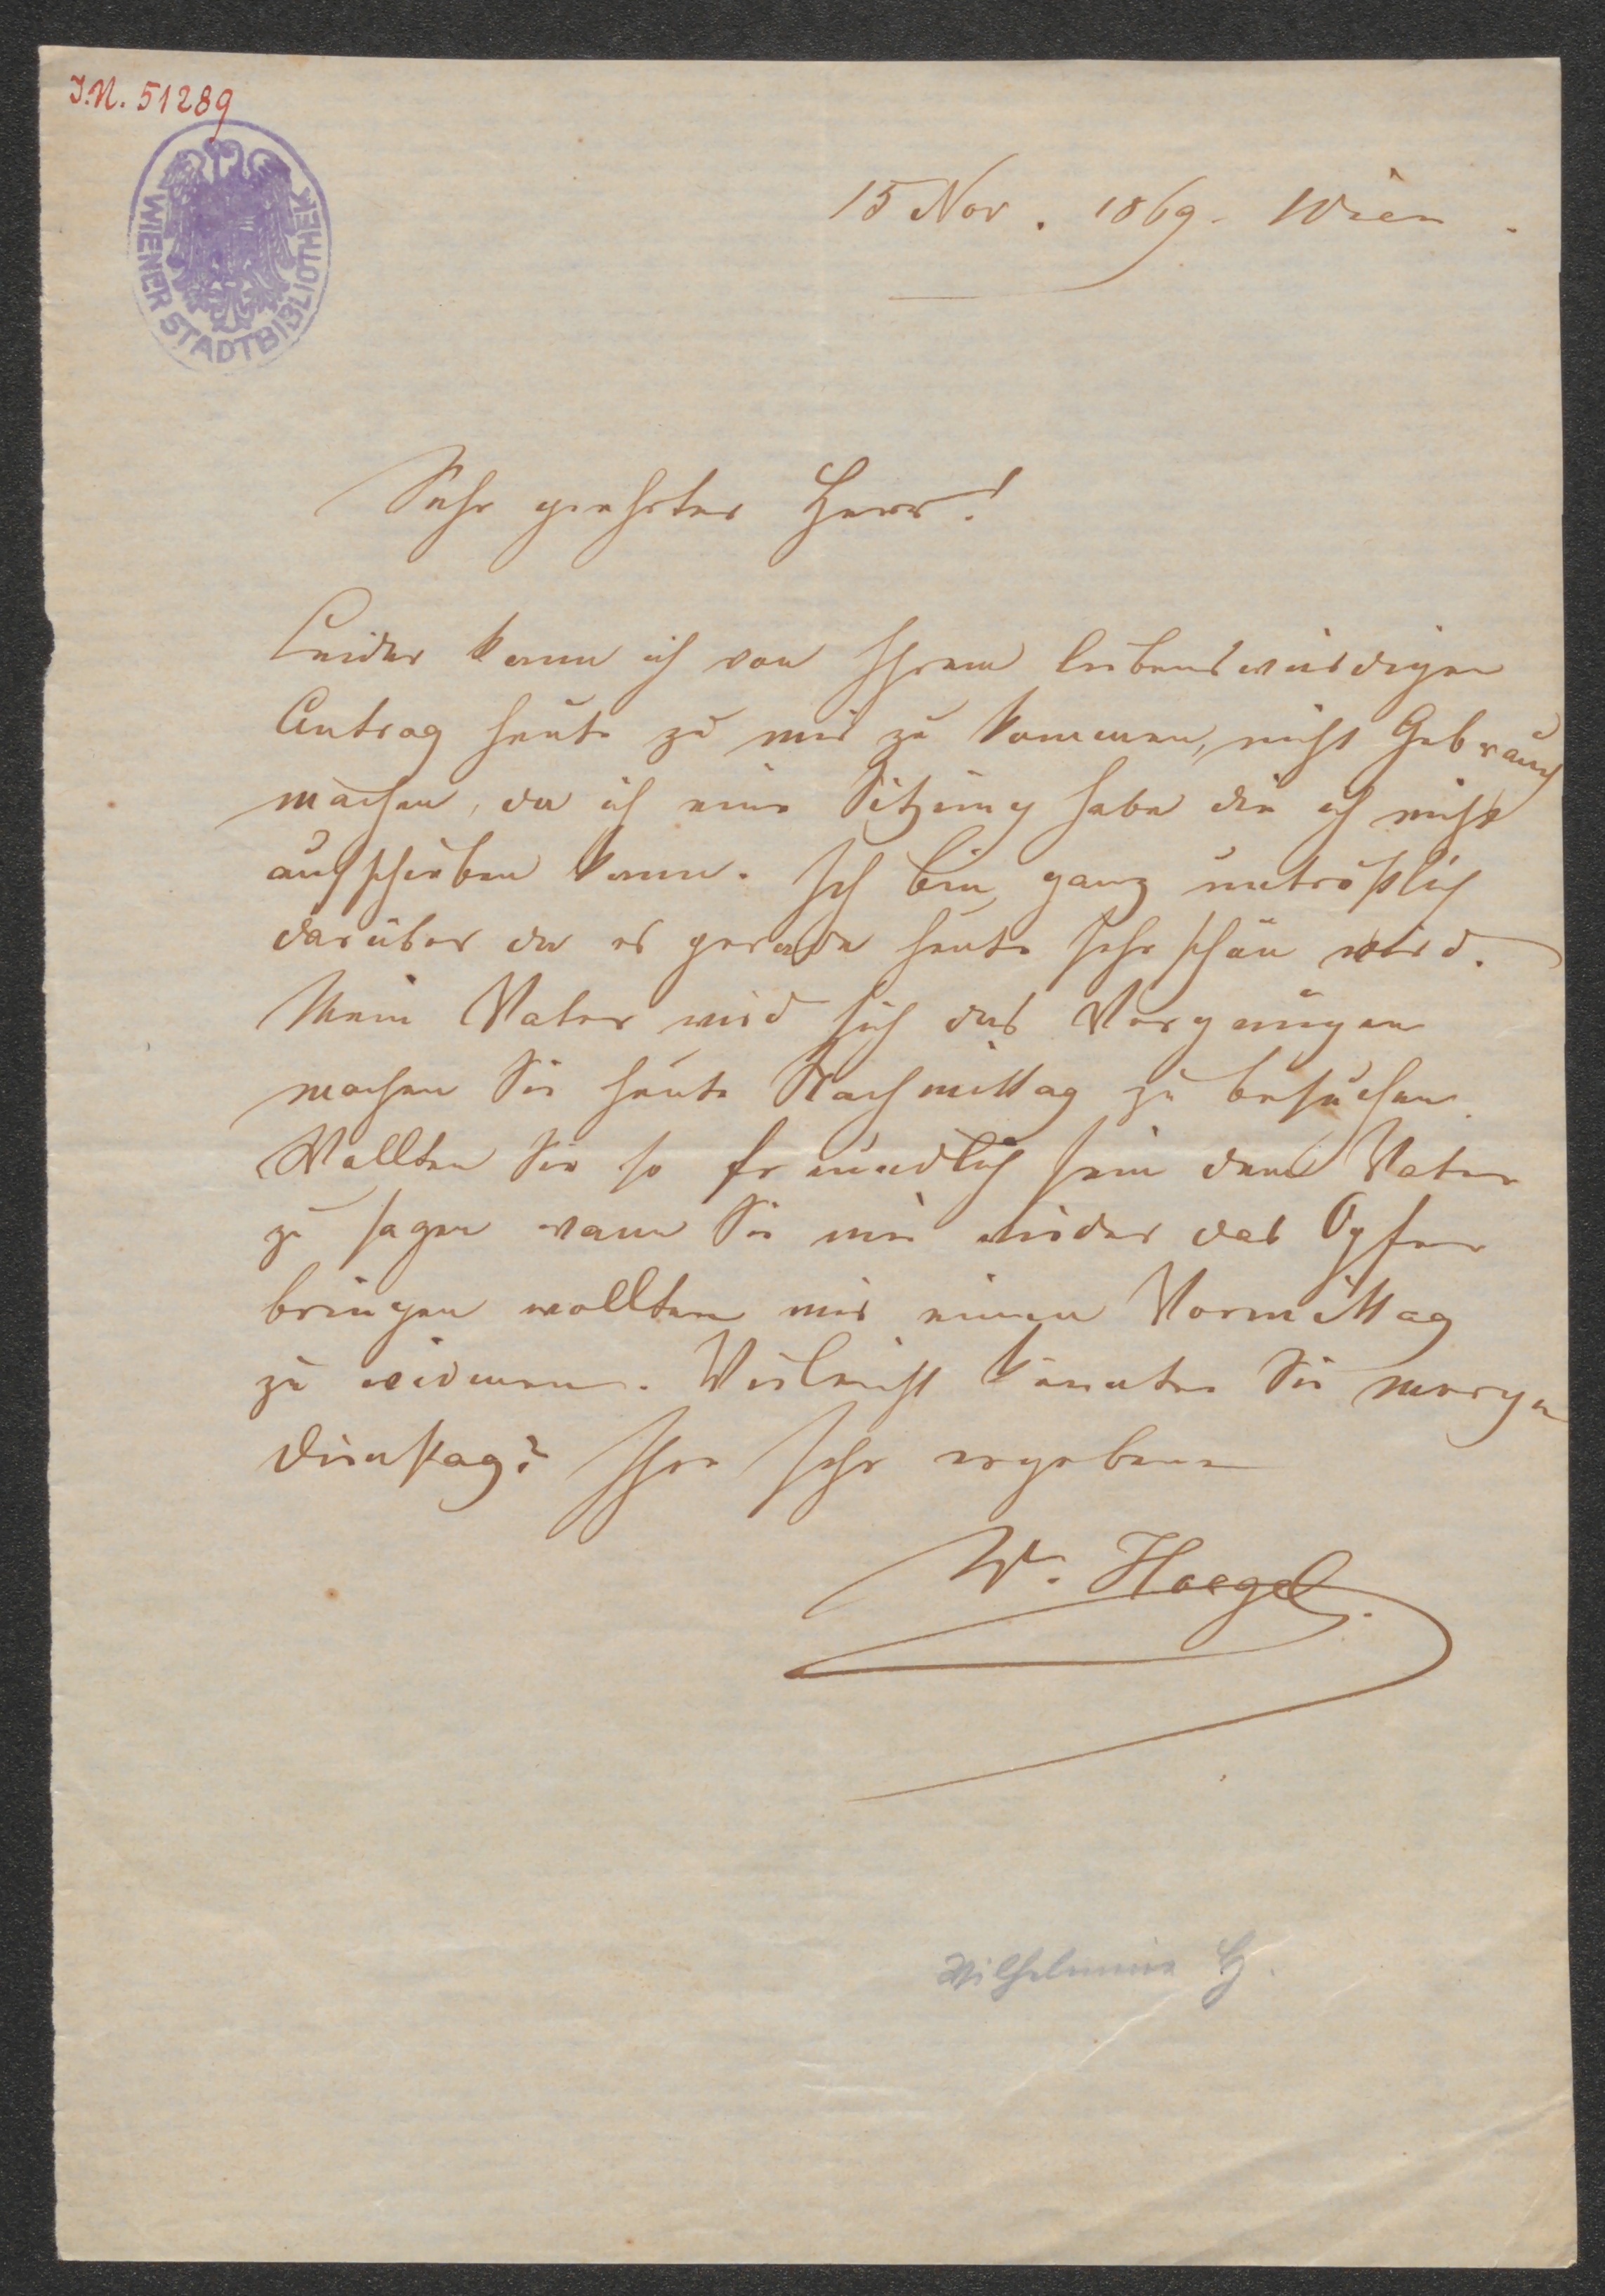 J.N. 51289
WIENER STADTBIBLIOTHEK
15 Nov. 1869. Wien.
Sehr geehrter Herr!
Leider kann ich von Ihrem liebenswürdigen
Antrag heute zu mir zu kommen, nicht Gebrauch
machen, da ich eine Sitzung habe die ich nicht
aufschieben kann. Ich bin ganz untröstlich
darüber da es gerade heute sehr schön wird.
Mein Vater wird sich das Vergnügen
machen Sie heute Nachmittag zu besuchen.
Wollten Sie so freundlich sein dem Vater
zu sagen wann Sie mir wieder das Opfer
bringen wollten mir einen Vormittag
zu widmen. Vieleicht könnten Sie morgen
Dienstag? Ihre sehr ergebene
W. Haegel.
Wilhelmine H.